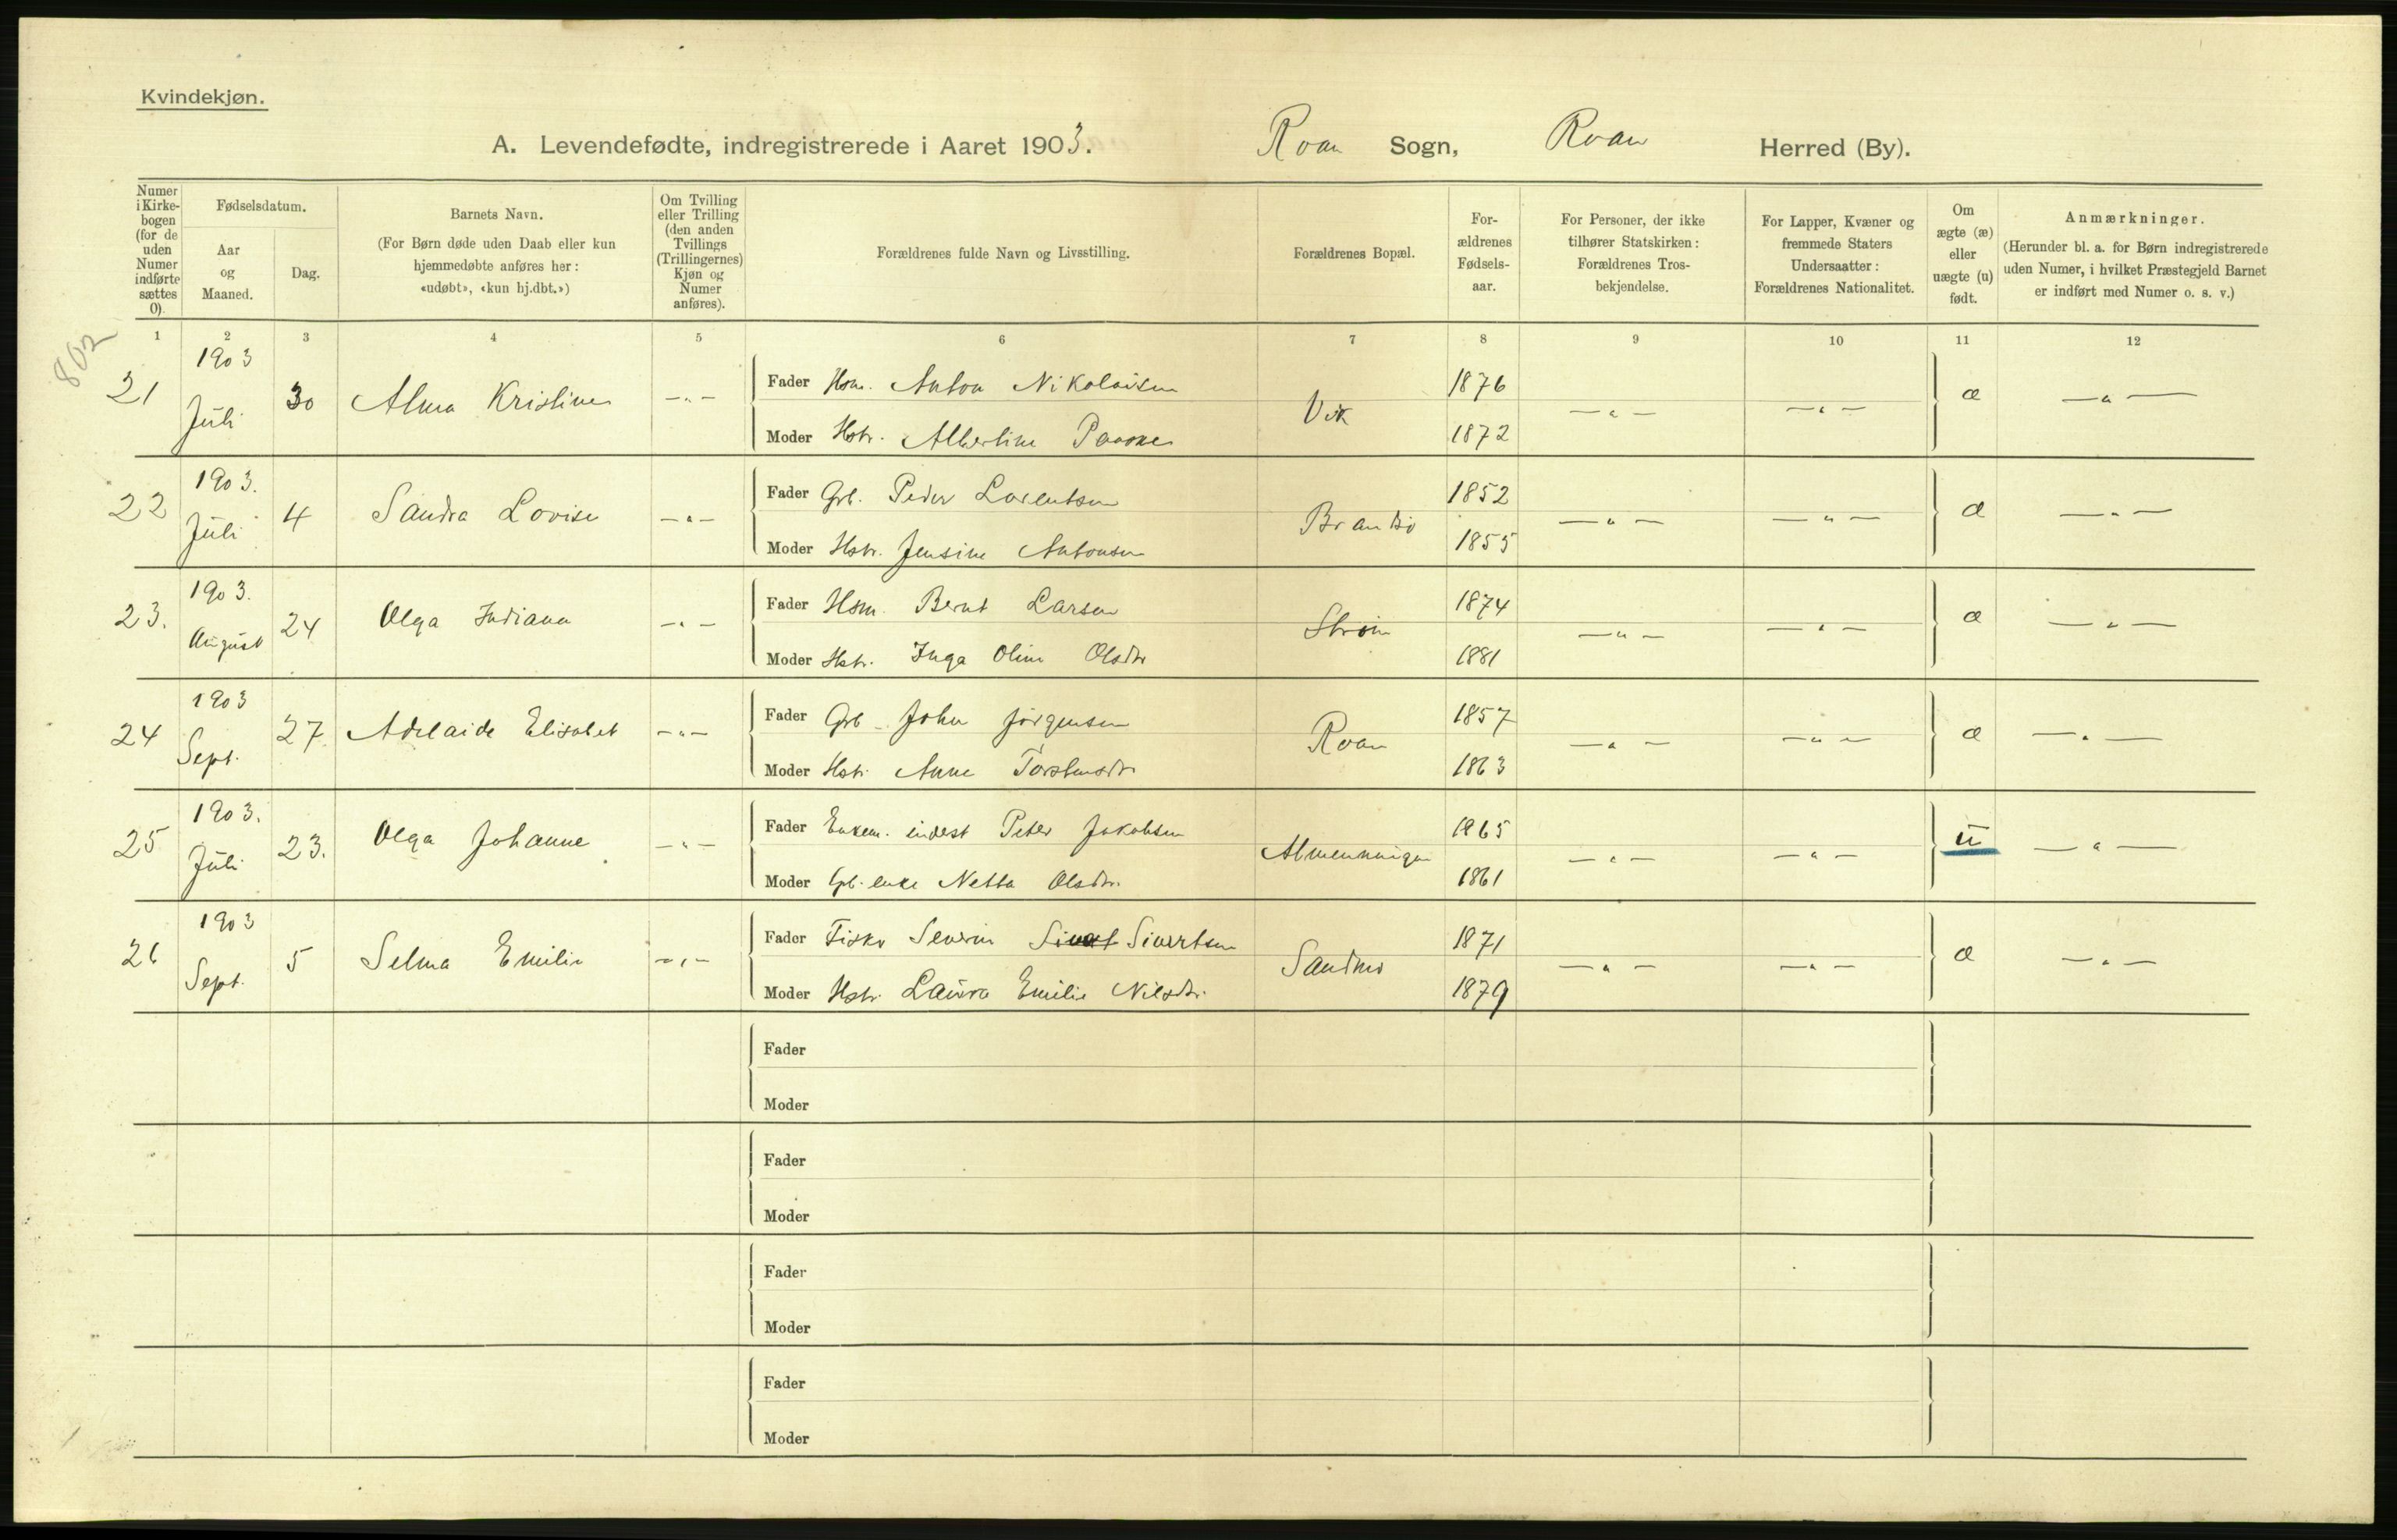 Kvindekjøn.
A. Levendefødte, indregistrerede i Aaret 1903. Roan Sogn, Roan Herred (By).
Numer i Kirke-bogen (for de uden Numer indførte sættes 0).
Fødselsdatum.
Aar og Maaned.
Dag.
Barnets Navn.
(For Børn døde uden Daab eller kun hjemmedøbte anføres her: «udøbt», «kun hj.dbt.»)
Om Tvilling eller Trilling (den anden Tvillings (Trillingernes) Kjøn og Numer anføres).
Forældrenes fulde Navn og Livsstilling.
Forældrenes Bopæl.
For-ældrenes Fødsels-aar.
For Personer, der ikke tilhører Statskirken: Forældrenes Tros-bekjendelse.
For Lapper, Kvæner og fremmede Staters Undersaatter: Forældrenes Nationalitet.
Om ægte (æ) eller uægte (u) født.
Anmærkninger.
(Herunder bl. a. for Børn indregistrerede uden Numer, i hvilket Præstegjeld Barnet er indført med Numer o. s. v.)
1 2 3 4 5 6 7 8 9 10 11 12
802
21 1903 Juli 30 Alma Kristine -"- Fader Hsm. Anton Nikolaisen Vik 1876 -"- -"- æ -"-
Moder Hstr. Albertine 1872
22 1903. Juli 4 Sandra Lovise -"- Fader Grb. Peder Lorentsen Brandsø 1852 -"- -"- æ -"-
Moder Hstr. Jensine Antonsen 1855
23. 1903. August 24 Olga Indiana -"- Fader Hsm. Bernt Larsen Strøm 1874 -"- -"- æ -"-
Moder Hstr. Inga Oline Olsdtr 1881
24 1903 Sept. 27 Adelaide Elisabet -"- Fader Grb John Jörgensen Roan 1857 -"- -"- æ -"-
Moder Hstr. Anne Torstensdtr 1863
25 1903. Juli 23. Olga Johanne -"- Fader Enkem. inderst Peter Jakobsen Almenningen 1865 -"- -"- u -"-
Moder Gb. enke Netta Olsdtr. 1861
26 1903 Sept. 5 Selma Emilie -"- Fader Fisker Severin Sivertsen Sandmo 1871 -"- -"- æ -"-
Moder Hstr. Laura Emilie Nilsdtr. 1879
Fader
Moder
Fader
Moder
Fader
Moder
Fader
Moder